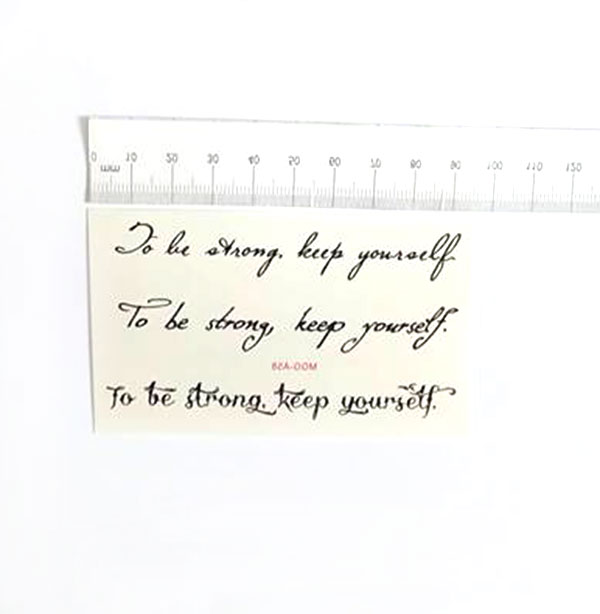 mm 0 10 20 30 40 50 60 70 80 90 100 110 120
To be strong. keep yourself.
To be strong, keep yourself.
MOO-A58
To be strong. keep yourself.